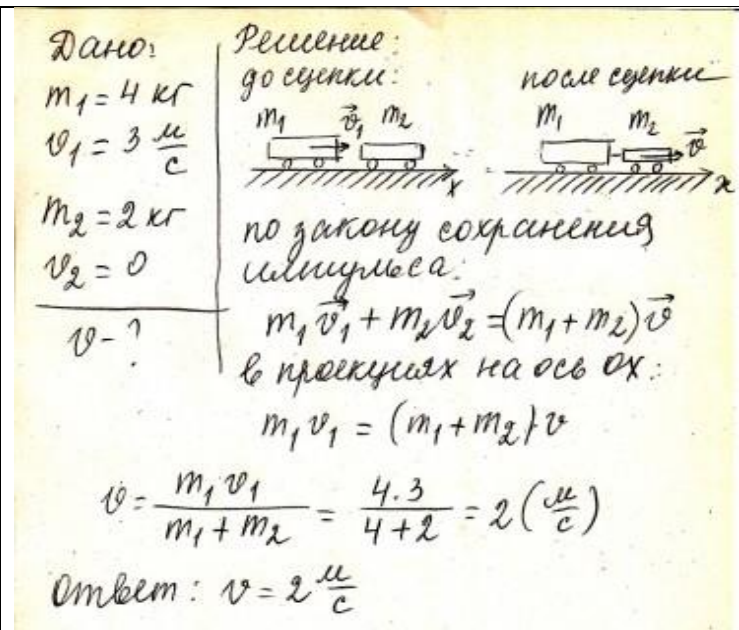 Дано:
m₁ = 4 кг
v₁ = 3 м/с
m₂ = 2 кг
v₂ = 0
v - ?
Решение:
до сцепки:
после сцепки
m₁ v⃗₁ m₂
x
m₁ m₂ v⃗
x
по закону сохранения
импульса:
m₁v⃗₁ + m₂v⃗₂ = (m₁ + m₂)v⃗
в проекциях на ось ОХ:
m₁v₁ = (m₁ + m₂)·v
v = m₁v₁ / m₁ + m₂ = 4·3 / 4+2 = 2 (м/с)
Ответ: v = 2 м/с